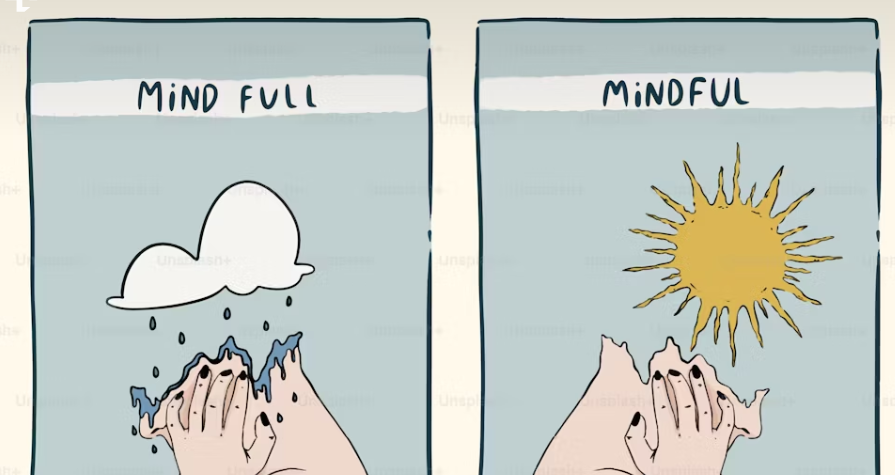 MiND FULL
MiNDFUL
Unsplash+